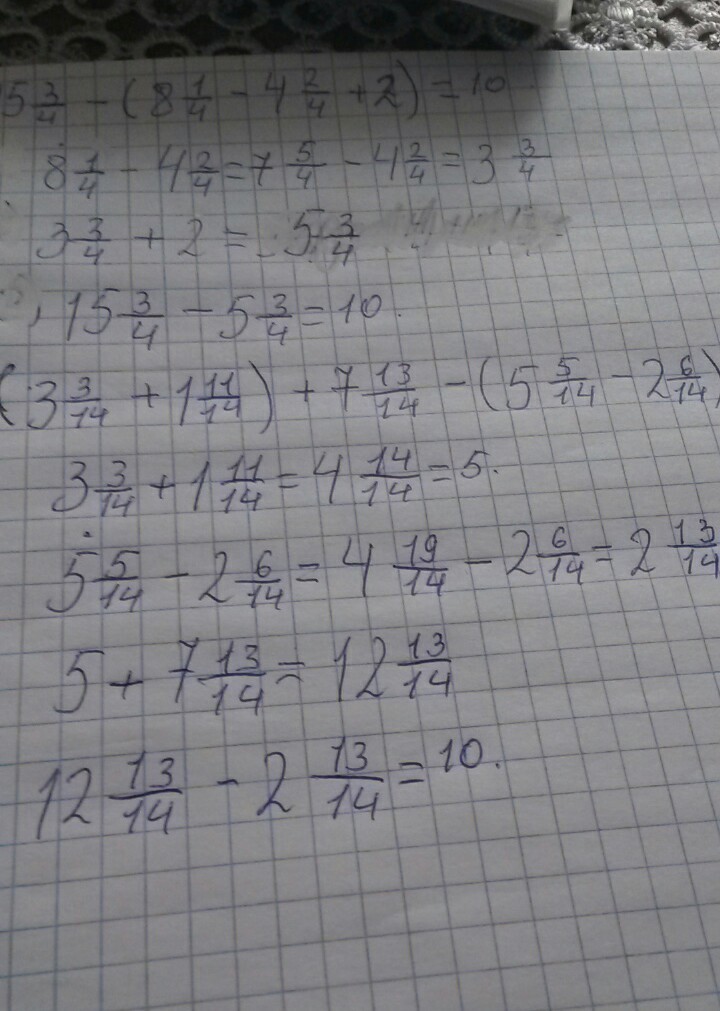 5 3/4 - (8 1/4 - 4 2/4 + 2) = 10.
8 1/4 - 4 2/4 = 7 5/4 - 4 2/4 = 3 3/4
3 3/4 + 2 = 5 3/4
15 3/4 - 5 3/4 = 10.
(3 3/14 + 1 11/14) + 7 13/14 - (5 5/14 - 2 6/14)
3 3/14 + 1 11/14 = 4 14/14 = 5.
5 5/14 - 2 6/14 = 4 19/14 - 2 6/14 = 2 13/14
5 + 7 13/14 = 12 13/14
12 13/14 - 2 13/14 = 10.